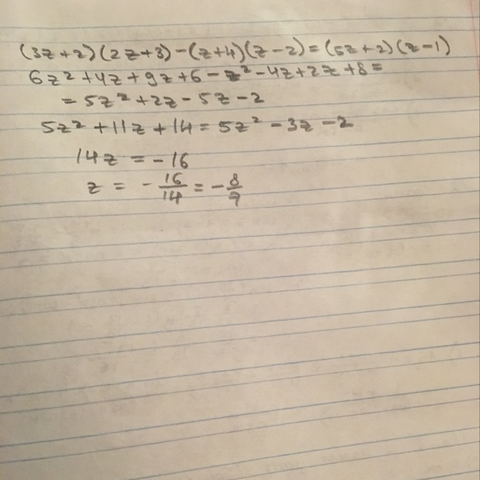 (3z+2)(2z+3)-(z+4)(z-2)=(5z+2)(z-1)
6z²+4z+9z+6-z²-4z+2z+8=
=5z²+2z-5z-2
5z²+11z+14=5z²-3z-2
14z=-16
z=-16/14=-8/7